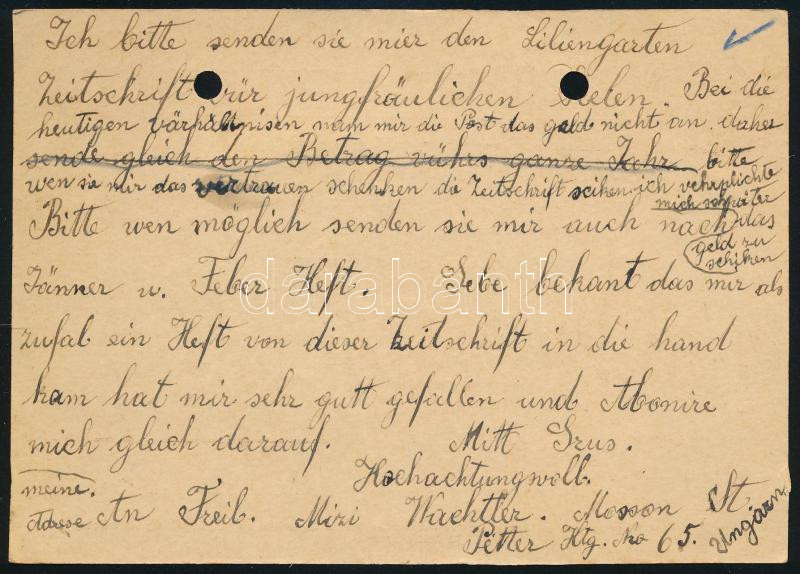 Ich bitte senden sie mier den Liliengarten
Zeitschrift vür jungfräulichen Selen. Bei die
heutigen värhältnisen nam mir die Post das geld nicht an. daher
sende gleich den Betrag vührs ganze Jahr bitte
wen sie mir das vertrauen schenken die Zeitschrift schiken ich vehrplichte
mich später
Bitte wen möglich senden sie mir auch nach das
geld zu
schiken
Jänner u. Feber Heft. Gebe bekant das mir als
zufal ein Heft von dieser Zeitschrift in die hand
kam hat mir sehr gutt gefallen und Abonire
mich gleich darauf. Mitt Grus.
Hochachtungsvoll.
meine.
Adrese An Freib. Mizi Wachtler. Moson St.
Petter Htg. No 65. Ungarn
darabanth